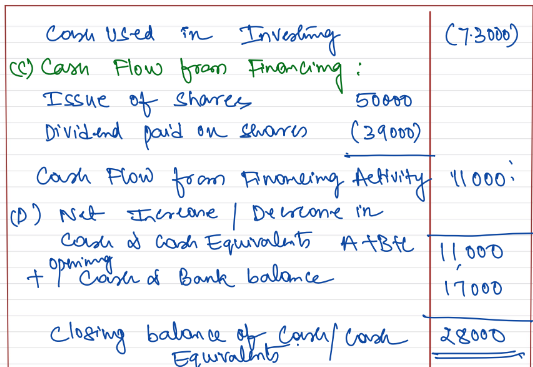 Cash Used in Investing (73000)
(C) Cash Flow from Financing :
Issue of Shares 50000
Dividend paid on shares (39000)
Cash Flow from Financing Activity 11000
(D) Net Increase / Decrease in
Cash & Cash Equivalents A+B+C 11000
+ opening Cash & Bank balance 17000
Closing balance of Cash/Cash Equivalents 28000